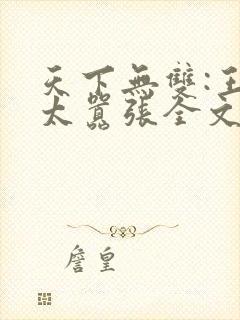 天下無雙:王
太囂張全文
詹皇